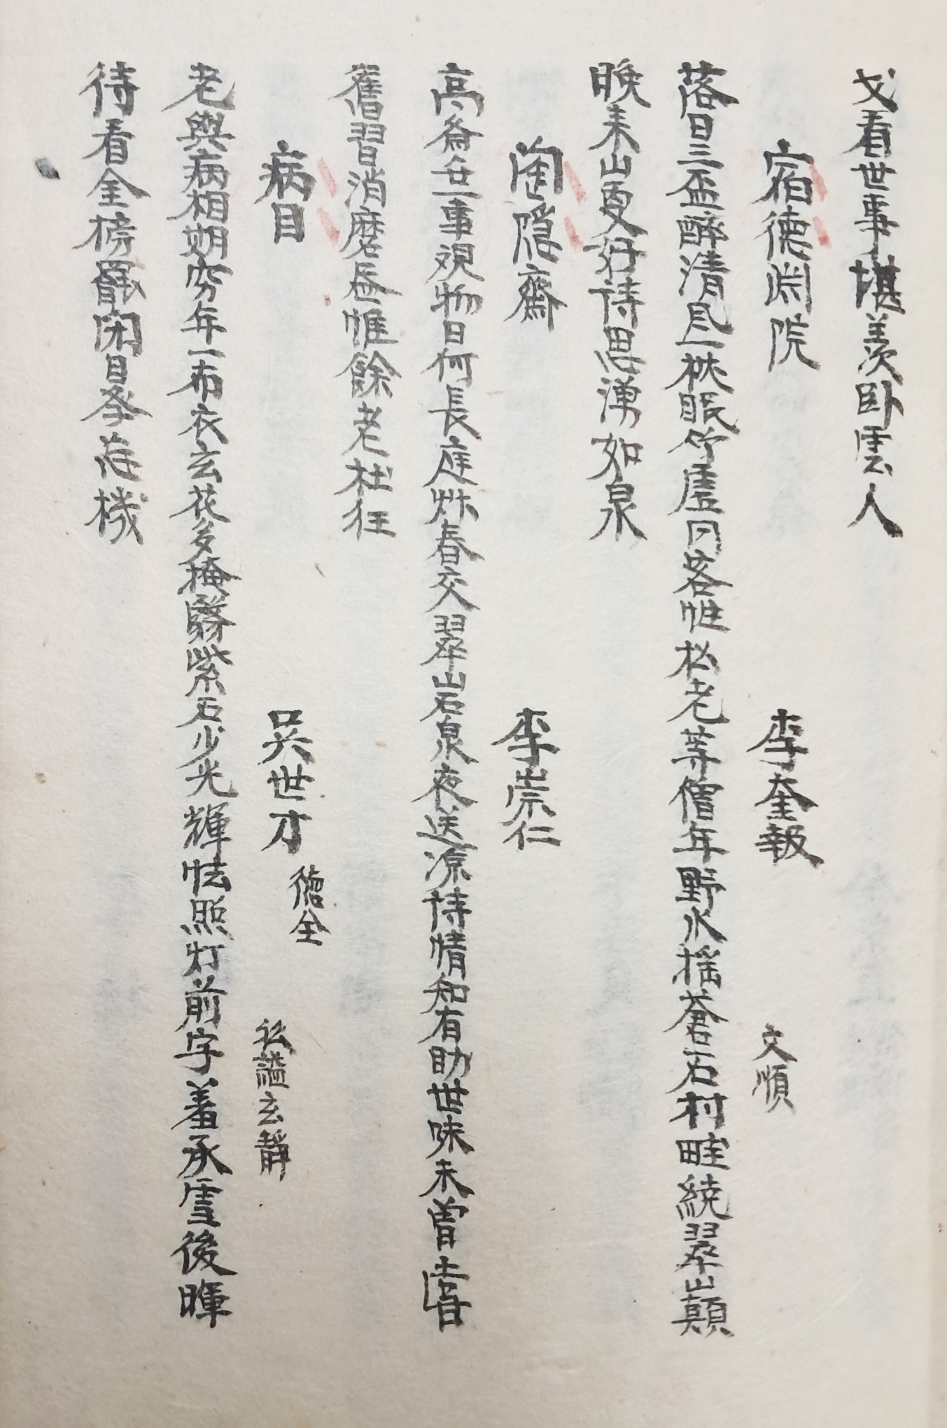 戈看世事堪羨卧雲人
宿德淵院 李奎報 文順
落日三盃醉清風一枕眠竹虛同客性松老等僧年野水搖蒼石村畦繞翠巔
晚来山更好詩思湧如泉
陶隱齋 李崇仁
高齋无一事覌物日何長庭艸春交翠岩泉夜送凉詩情知有助世味未曽嘗
舊習消磨盡惟餘老杜狂
病目 吳世才 德全 私謚玄靜
老與病相期窮年一布衣玄花多掩翳紫石少光輝怯照灯前字羞承雪後暉
待看全榜罷閉目學忘機